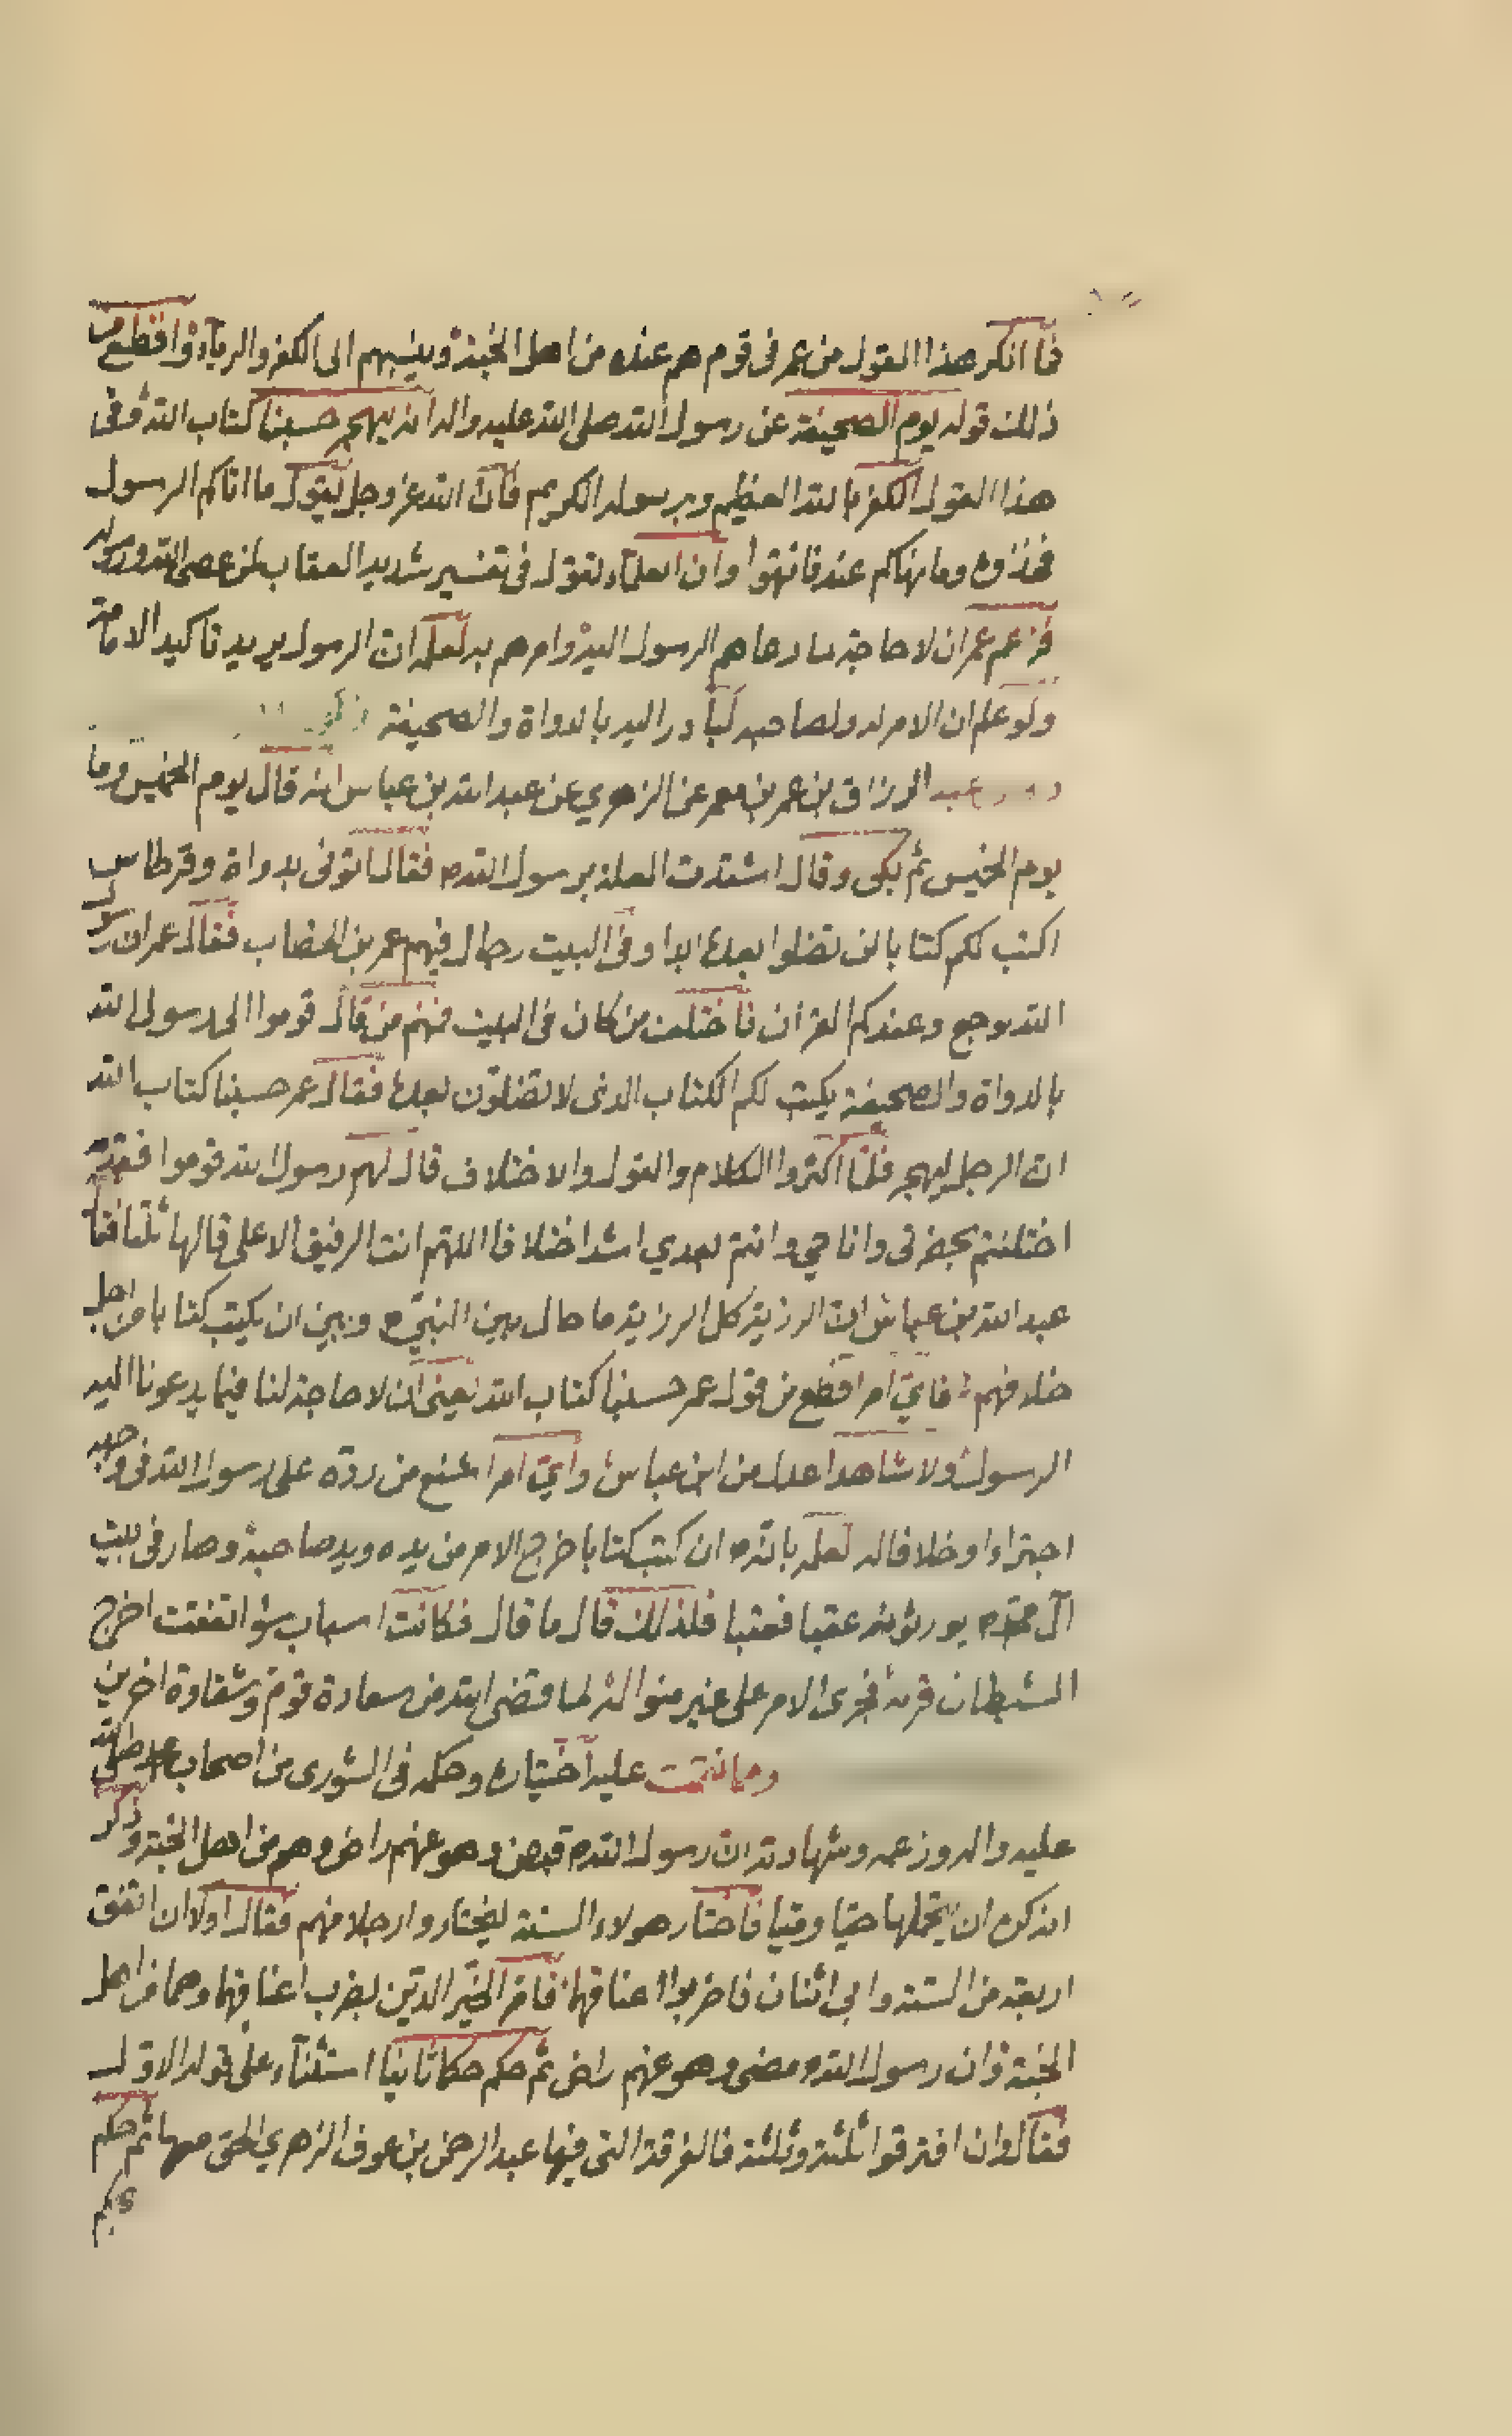 فما انكر هذا القول من عمر فى قوم هم عنده من اهل الجنة وينسبهم الى الكفر والرياء وافظع من
ذلك قوله يوم الصحيفة عن رسول الله صلى الله عليه واله انه يهجر حسبنا كتاب الله وفى
هذا القول الكفر بالله العظيم وبرسوله الكريم فان الله عز وجل يقول ما اتاكم الرسول
فخذوه وما نهاكم عنه فانتهوا وان العلماء لتقول فى تفسير شديد العقاب لمن عصى الله ورسوله
فزعم عمر ان لا حاجة بما دعاهم الرسول اليه وامرهم به لعلمه ان الرسول يريد تاكيد الامامة
ولو علم ان الامر له ولصاحبه لبادر اليه بالدواة والصحيفة
عبد الرزاق بن عمر بن معمر عن الزهري عن عبد الله بن عباس انه قال يوم الخميس وما
يوم الخميس ثم بكى وقال اشتدت العلة برسول الله ص فقال ائتونى بدواة وقرطاس
اكتب لكم كتابا لن تضلوا بعده ابدا وفى البيت رجال فيهم عمر بن الخطاب فقال عمر ان رسول
الله يوجع وعندكم القران فاختلف من كان فى البيت فمنهم من قال قوموا الى رسول الله
بالدواة والصحيفة يكتب لكم الكتاب الذى لا تضلون بعده فقال عمر حسبنا كتاب الله
ان الرجل ليهجر فلما اكثروا الكلام والقول والاختلاف قال لهم رسول الله قوموا فقد
اختلفتم بحضرتى وانا حي وانتم بعدي اشد اختلافا اللهم انت الرفيق الاعلى قالها ثلثا فقال
عبد الله بن عباس ان الرزية كل الرزية ما حال بين النبي ص وبين ان يكتب كتابا من اجل
خلافهم فاي امر افظع من قول عمر حسبنا كتاب الله يعنى ان لا حاجة لنا فيما يدعونا اليه
الرسول ولا شاهد اعدل من ابن عباس واي امر اشنع من رده على رسول الله فى وجهه
اجتراء وخلافا له لعلمه بانه ان كتب كتابا خرج الامر من يده ويد صاحبه وصار فى بيت
آل محمد يورثونه عقبا فعقبا فلذلك قال ما قال فكانت اسباب سؤ اتفقت اخرج
الشيطان قرنه فجرى الامر على غير منواله لما قضى الله من سعادة قوم وشقاوة اخرين
ومما نقمت عليه اختياره وحكمه فى الشورى من اصحاب محمد صلى الله
عليه واله وزعمه وشهادته ان رسول الله ص قبض وهو عنهم راض وهم من اهل الجنة وذكر
انه كره ان يتحملها حيا وميتا فاختار هولاء الستة ليختاروا رجلا منهم فقال اولا ان اتفق
اربعة من الستة وابى اثنان فاضربوا اعناقهما فامر الخير الدين بضرب اعناقهما وهما من اهل
الجنة وان رسول الله ص مضى وهو عنهم راض ثم حكم حكما ثانيا استثناء على قوله الاول
فقال وان افترقوا ثلثة وثلثة فالفرقة التى فيها عبد الرحمن بن عوف الزهري الحق معها ثم حكم